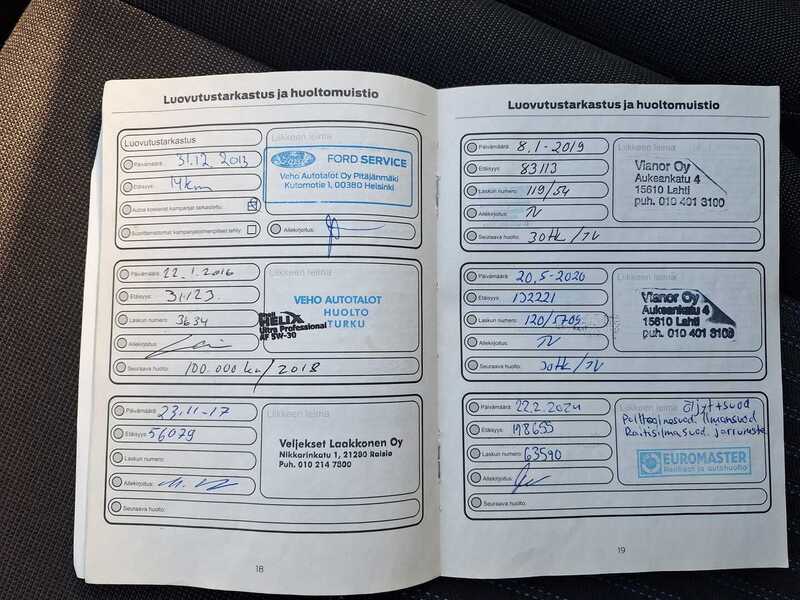 Luovutustarkastus ja huoltomuistio
Luovutustarkastus
Päivämäärä: 31.12 2013
Etäisyys: 14km
Autoa koskevat kampanjat tarkastettu:
Suorittamattomat kampanjatoimenpiteet tehty:
Liikkeen leima
Ford FORD SERVICE
Veho Autotalot Oy Pitäjänmäki
Kutomotie 1, 00380 Helsinki
Allekirjoitus:
Päivämäärä: 22.1.2016
Etäisyys: 31123.
Laskun numero: 3634
Allekirjoitus:
Liikkeen leima
VEHO AUTOTALOT
HUOLTO
TURKU
Shell
HELIX
Ultra Professional
AF 5W-30
Seuraava huolto: 100.000 km/2018
Päivämäärä: 23.11-17
Etäisyys: 56079
Laskun numero:
Allekirjoitus:
Liikkeen leima
Veljekset Laakkonen Oy
Nikkarinkatu 1, 21280 Raisio
Puh. 010 214 7800
Seuraava huolto:
18
Luovutustarkastus ja huoltomuistio
Päivämäärä: 8.1-2019
Etäisyys: 83113
Laskun numero: 119/54
Allekirjoitus: TV
Liikkeen leima
Vianor Oy
Aukeankatu 4
15610 Lahti
puh. 010 401 3100
Seuraava huolto: 30tk/TV
Päivämäärä: 20.5-2020
Etäisyys: 102221
Laskun numero: 120/5709
Allekirjoitus: TV
Liikkeen leima
Vianor Oy
Aukeankatu 4
15610 Lahti
puh. 010 401 3100
Seuraava huolto: 30tk/TV
Päivämäärä: 22.2.2021
Etäisyys: 118655
Laskun numero: 63590
Allekirjoitus:
Liikkeen leima
Öljyt+suod
Polttoainesuod. Ilmansuod
Raitisilmasuod. jarruneste
EUROMASTER
Renkaat ja autohuolto
Seuraava huolto:
19